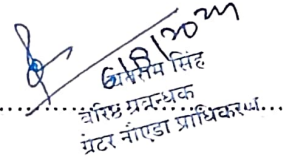 6/8/2021
सिंह
वरिष्ठ प्रबन्धक
ग्रेटर नौएडा प्राधिकरण